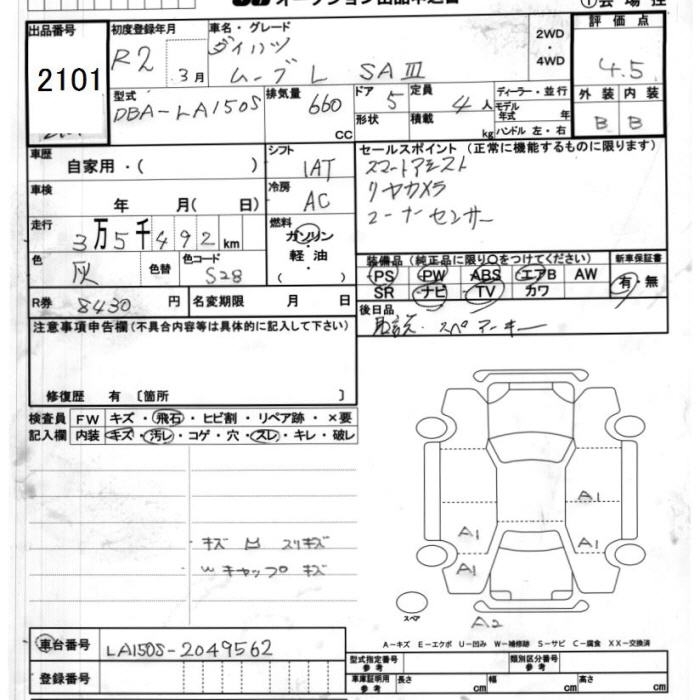 オークション出品申込書
①会場控
出品番号 2101
初度登録年月 R2 3月
車名・グレード ダイハツ ムーブL SAⅢ
2WD・4WD
評価点 4.5
型式 DBA-LA150S
排気量 660 CC
ドア 5 形状
定員 4人 積載 kg
ディーラー・並行
モデル年式 年
ハンドル 左・右
外装 B 内装 B
車歴 自家用・( )
シフト IAT
セールスポイント(正常に機能するものに限ります)
スマートアシスト
リヤカメラ
コーナーセンサー
車検 年 月( 日)
冷房 AC
走行 3万5千492km
燃料 ガソリン・軽油・( )
色 灰 色替 色コード S28
装備品(純正品に限り○をつけてください)
PS PW ABS エアB AW
SR ナビ TV カワ
新車保証書 有・無
R券 8430円 名変期限 月 日
後日品 取説.スペアーキー
注意事項申告欄(不具合内容等は具体的に記入して下さい)
修復歴 有〔箇所 〕
検査員記入欄
FW キズ・飛石・ヒビ割・リペア跡・×要
内装 キズ・汚レ・コゲ・穴・スレ・キレ・破レ
キズ 凹 スリキズ
Wキャップ キズ
A1
A1 A1
A1
スペア
A2
A-キズ E-エクボ U-凹み W-補修跡 S-サビ C-腐食 XX-交換済
車台番号 LA150S-2049562
登録番号
型式指定番号 参考
類別区分番号 参考
車庫証明用 参考 長さ cm 幅 cm 高さ cm